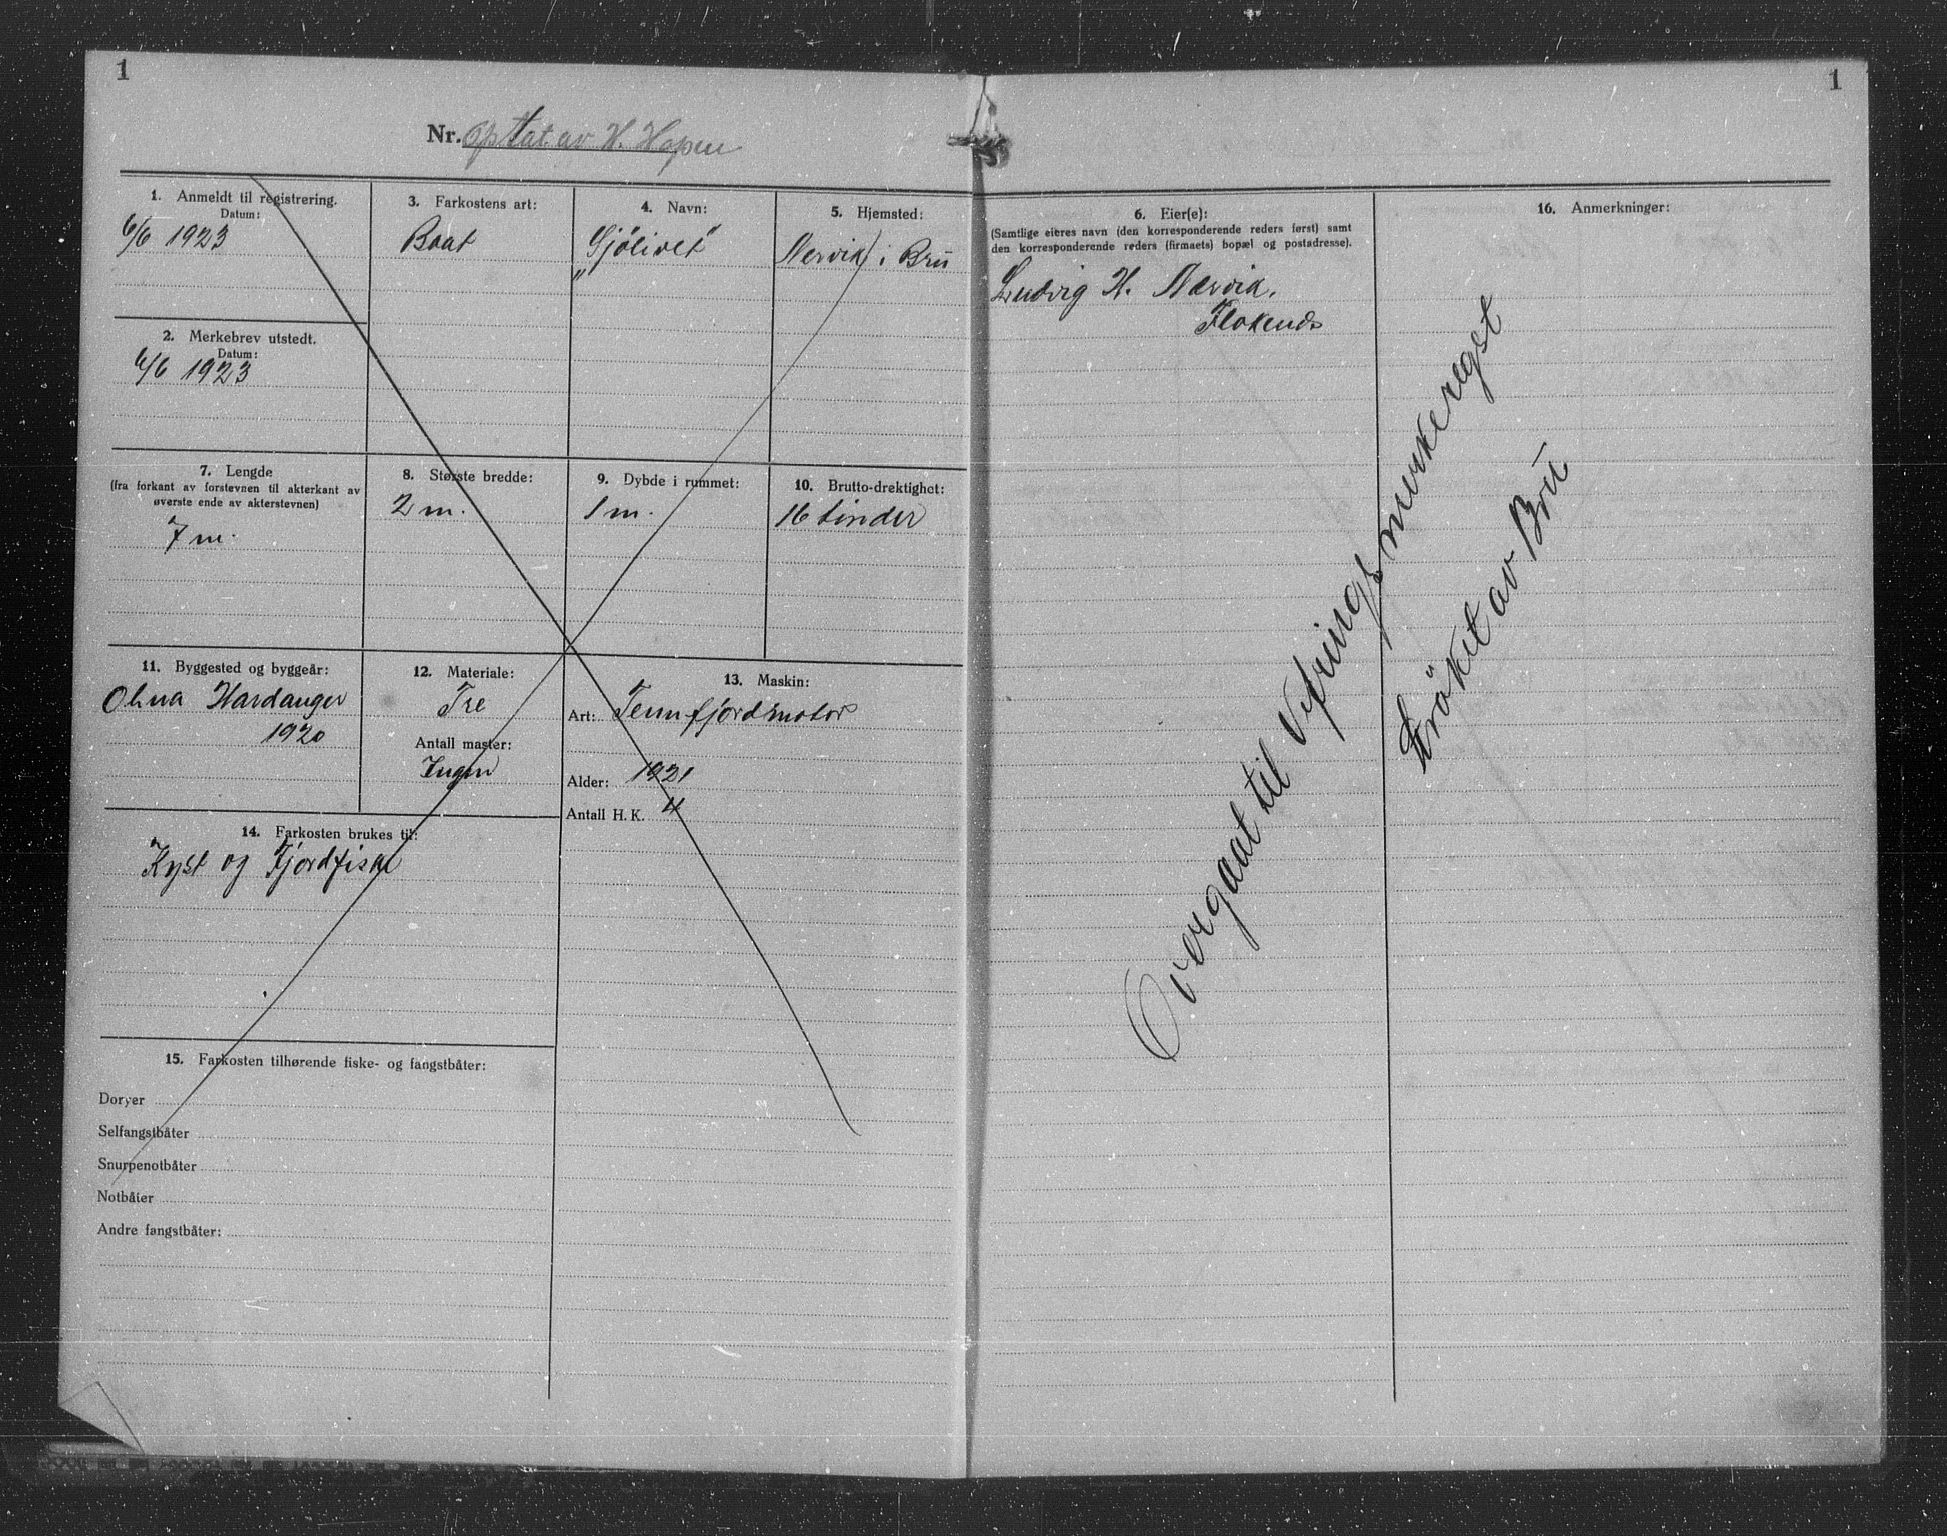 1
1
Nr. optat av H. Hopen
1. Anmeldt til registrering.
Datum:
6/6 1923
2. Merkebrev utstedt.
Datum:
6/6 1923
3. Farkostens art:
Baat
4. Navn:
"Sjölivet"
5. Hjemsted:
Nervik i Brü
7. Lengde
(fra forkant av forstevnen til akterkant av
øverste ende av akterstevnen)
7 m.
8. Største bredde:
2 m.
9. Dybde i rummet:
1 m.
10. Brutto-drektighet:
16 tönder
11. Byggested og byggeår:
Hardanger
1920
12. Materiale:
Tre
Antall master:
Ingen
13. Maskin:
Art: Tennfjordmotor
Alder: 1921
Antall H. K. 4
14. Farkosten brukes til:
Kyst og Fjordfiske
15. Farkosten tilhørende fiske- og fangstbåter:
Doryer
Selfangstbåter
Snurpenotbåter
Notbåter
Andre fangstbåter:
6. Eier(e):
(Samtlige eieres navn (den korresponderende reders først) samt
den korresponderende reders (firmaets) bopæl og postadresse).
Ludvig H. Nærvik.
Flokenes
16. Anmerkninger:
Overgaat til Vefrings merkeregst
Ströket av Brü